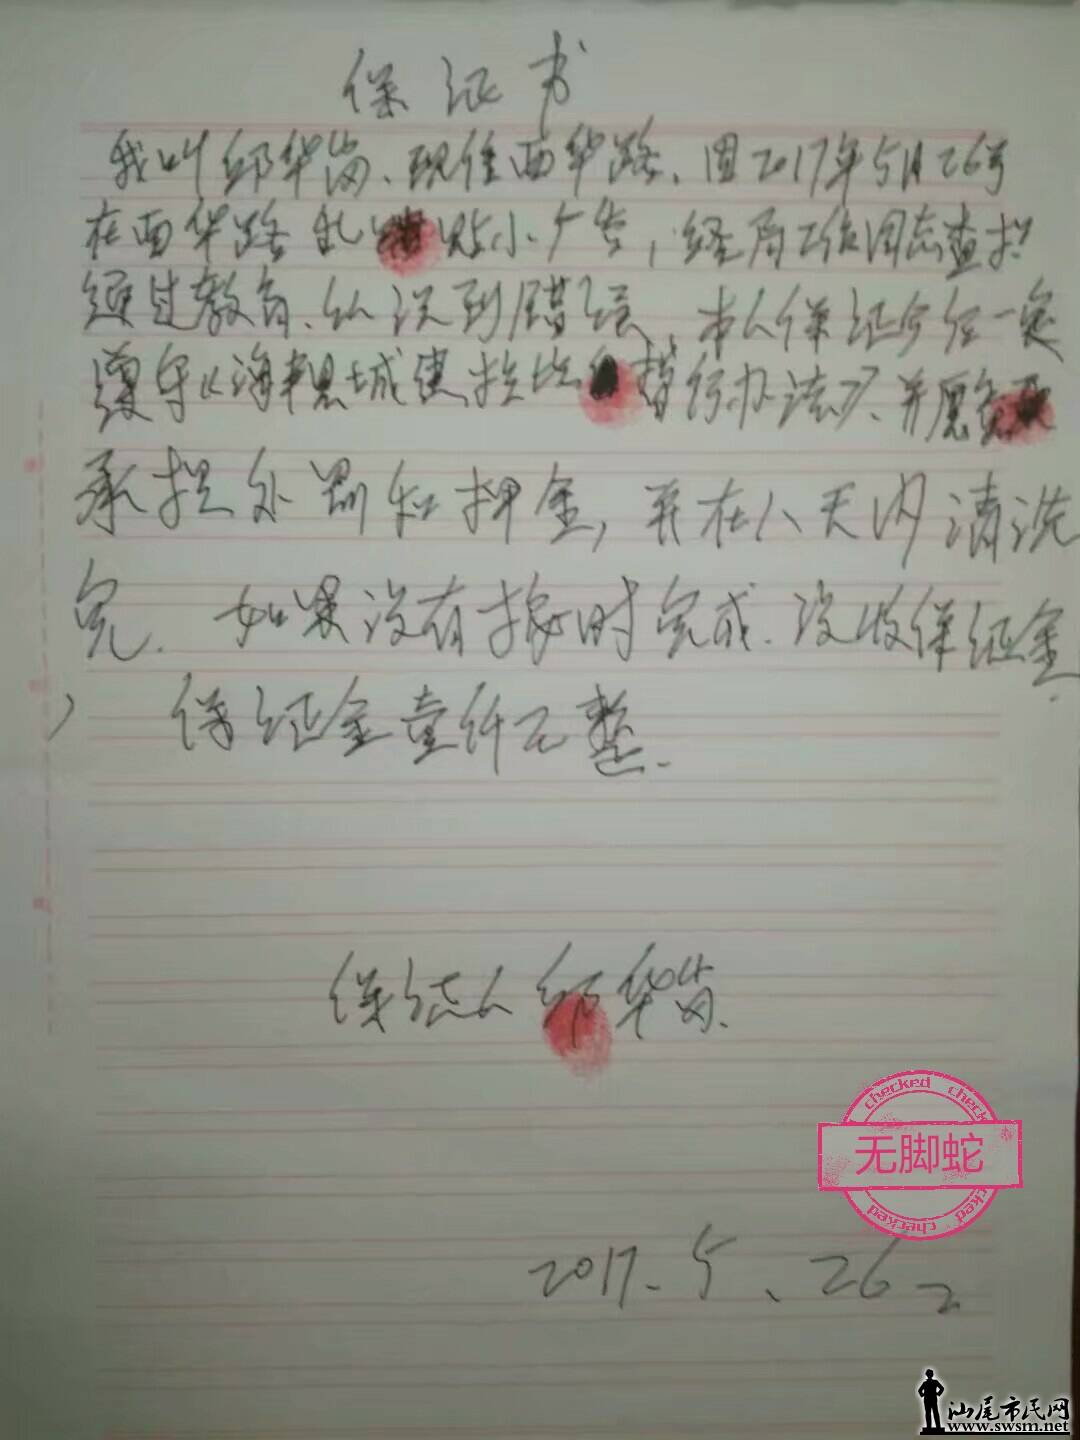 保证书
我叫邱华茵、现住西华路、因2017年5月26号
在西华路乱贴小广告，经局工作同志查扣
通过教育、认识到错误、本人保证今后一定
遵守《海丰县城建监察暂行办法》、并愿
承担处罚和押金，并在八天内清洗
完. 如果没有按时完成. 没收保证金.
保证金壹仟元整.
保证人 邱华茵.
checked check
无脚蛇
checked chec
2017.5、26
汕尾市民网
www.swsm.net